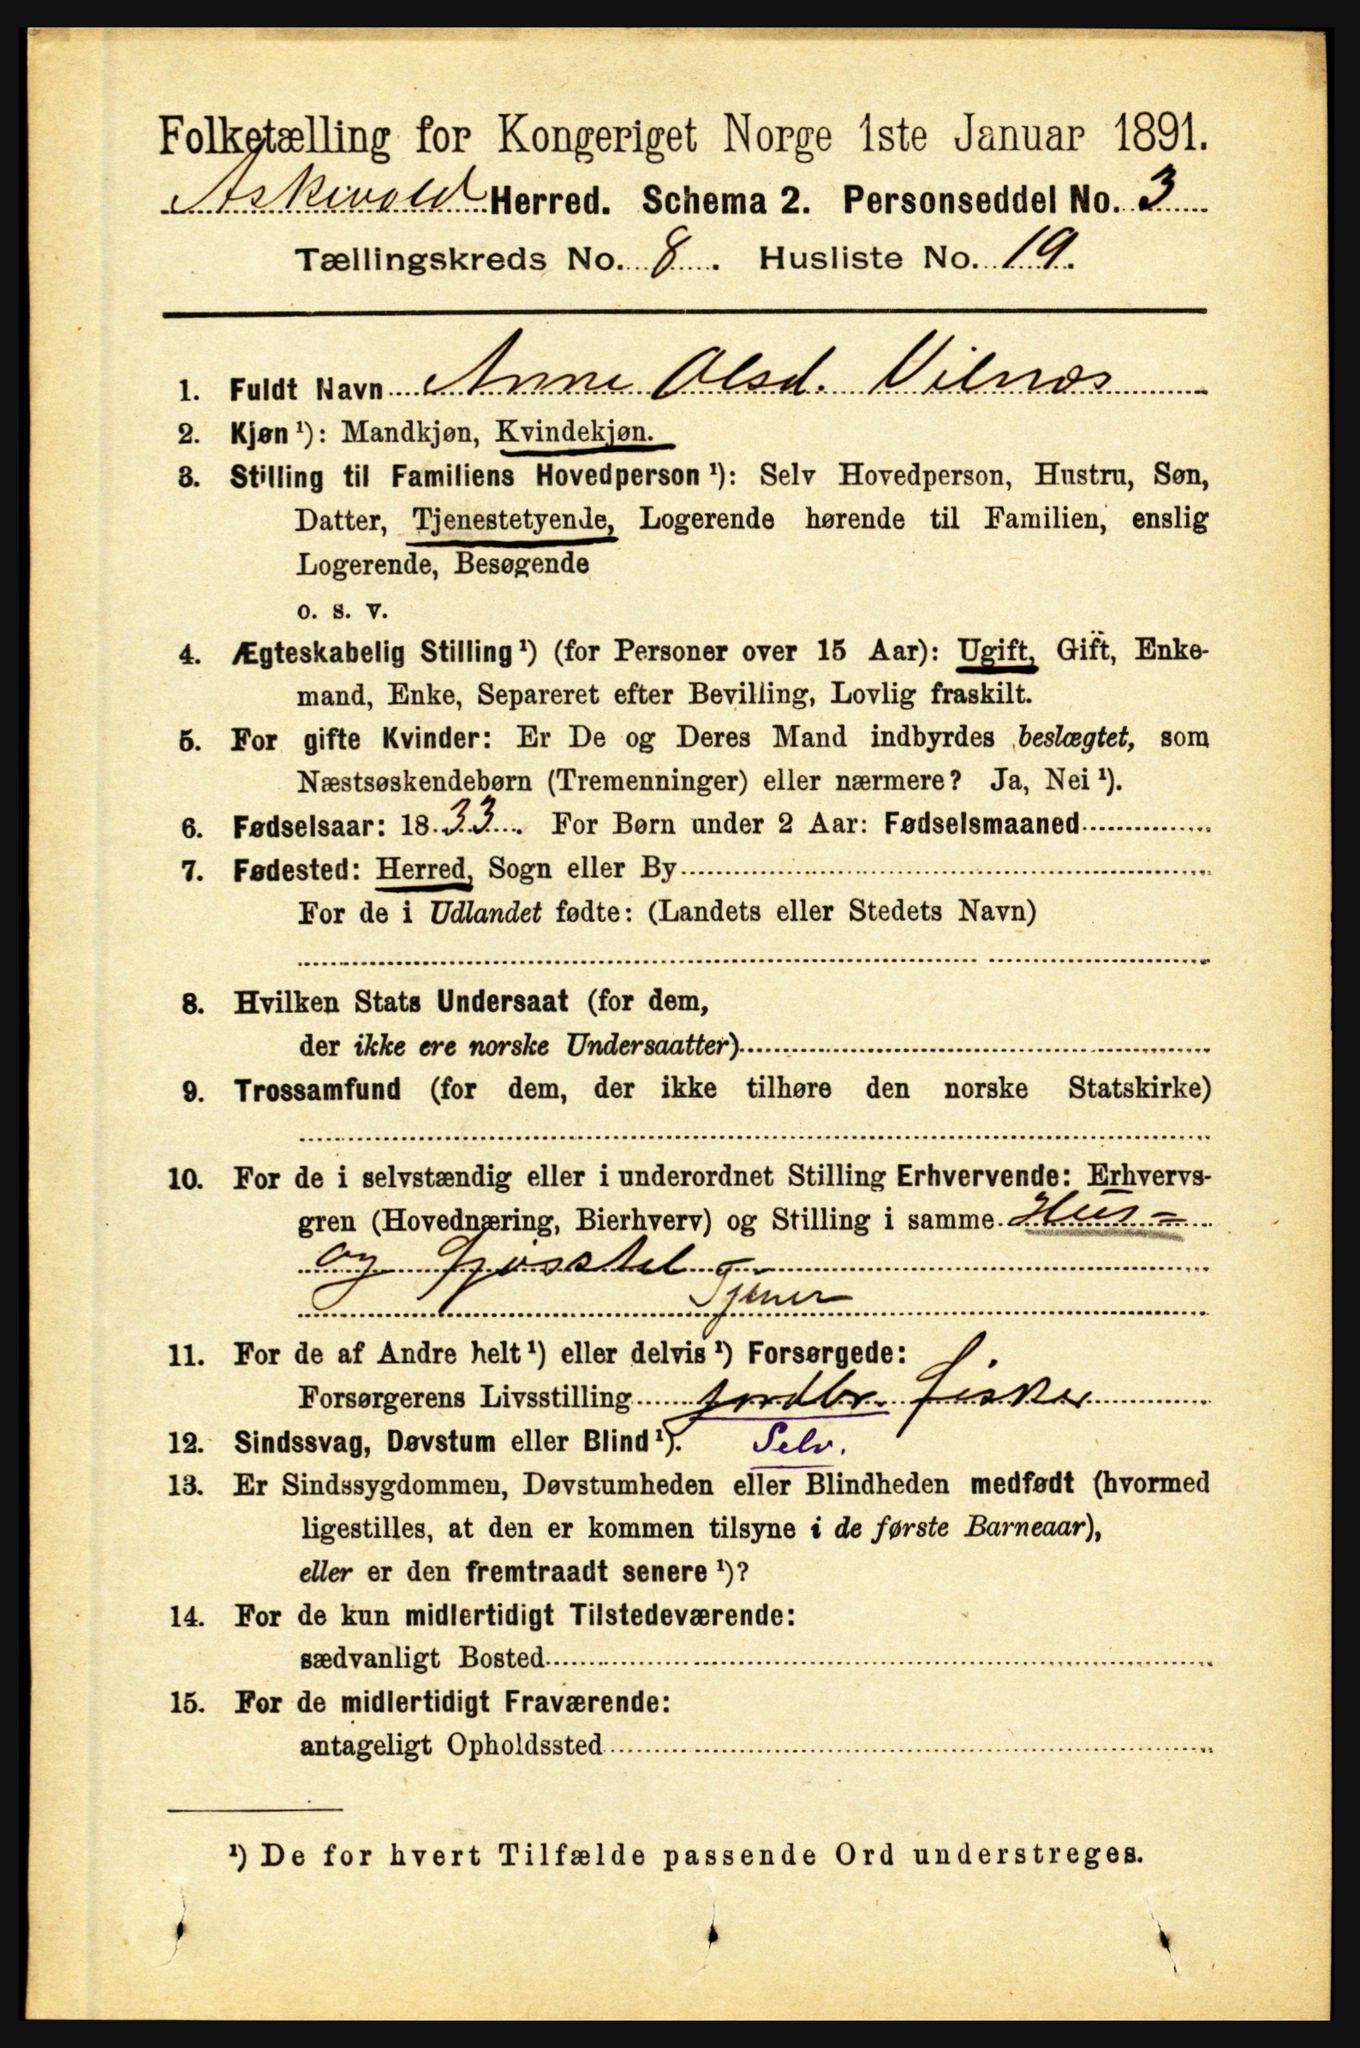 Folketælling for Kongeriget Norge 1ste Januar 1891.
Askevold Herred. Schema 2. Personseddel No. 3
Tællingskreds No. 8. Husliste No. 19.
1. Fuldt Navn Anne Olsd. Vilnæs
2. Kjøn ¹): Mandkjøn, Kvindekjøn.
3. Stilling til Familiens Hovedperson ¹): Selv Hovedperson, Hustru, Søn,
Datter, Tjenestetyende, Logerende hørende til Familien, enslig
Logerende, Besøgende
o. s. v.
4. Ægteskabelig Stilling ¹) (for Personer over 15 Aar): Ugift, Gift, Enke-
mand, Enke, Separeret efter Bevilling, Lovlig fraskilt.
5. For gifte Kvinder: Er De og Deres Mand indbyrdes beslægtet, som
Næstsøskendebørn (Tremenninger) eller nærmere? Ja, Nei ¹).
6. Fødselsaar: 1833. For Børn under 2 Aar: Fødselsmaaned
7. Fødested: Herred, Sogn eller By
For de i Udlandet fødte: (Landets eller Stedets Navn)
8. Hvilken Stats Undersaat (for dem,
der ikke ere norske Undersaatter)
9. Trossamfund (for dem, der ikke tilhøre den norske Statskirke)
10. For de i selvstændig eller i underordnet Stilling Erhvervende: Erhvervs-
gren (Hovednæring, Bierhverv) og Stilling i samme Hus-
og fjøsstel
Tjener
11. For de af Andre helt ¹) eller delvis ¹) Forsørgede:
Forsørgerens Livsstilling jordbr. fisker
12. Sindssvag, Døvstum eller Blind ¹). Selv.
13. Er Sindssygdommen, Døvstumheden eller Blindheden medfødt (hvormed
ligestilles, at den er kommen tilsyne i de første Barneaar),
eller er den fremtraadt senere ¹)?
14. For de kun midlertidigt Tilstedeværende:
sædvanligt Bosted
15. For de midlertidigt Fraværende:
antageligt Opholdssted
¹) De for hvert Tilfælde passende Ord understreges.